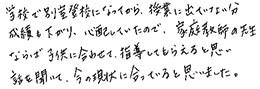 学校で別室登校になってから、授業に出ていない分
成績も下がり、心配していたので、家庭教師の先生
ならば子供に合わせて、指導してもらえると思い
話を聞いて、今の現状に合っていると思いました。